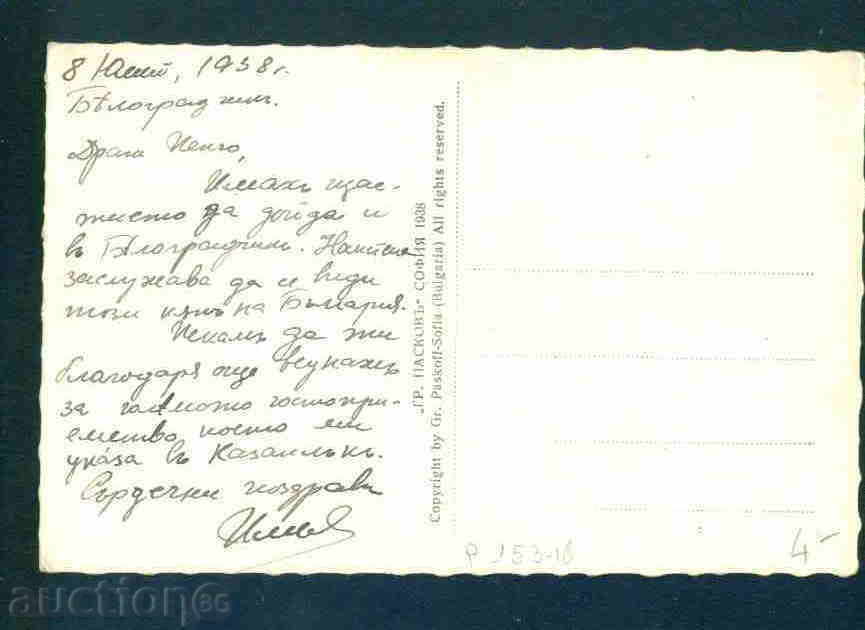 8 Юлий, 1938 г.
Бѣлоградчикъ.
Драги Пенчо,
Имахъ щас-
тието да дойда и
въ Бѣлоградчикъ. Наистина
заслужава да се види
този кътъ на България.
Искамъ да ти
благодаря още веднажъ
за голѣмото гостопри-
емство което ми
указа въ Казанлъкъ.
Сърдечни поздрави
„ГР. ПАСКОВЪ“ СОФИЯ 1938
Copyright by Gr. Paskoff-Sofia (Bulgaria) All rights reserved.
P 153-18
4-
auctionBG